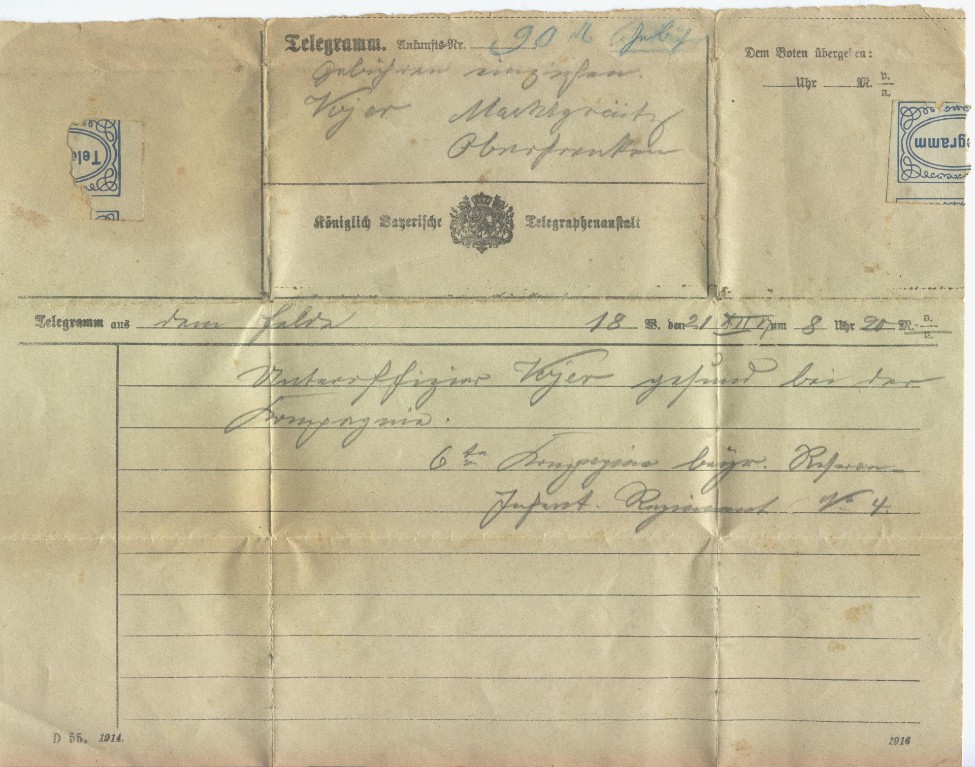 Telegramm. Ankunfts-Nr. 90 Gebühr
Gebühren einziehen.
Marktgraitz
Oberfranken
Dem Boten übergeben:
Uhr M. v.
n.
Tele
egramm
Königlich Bayerische Telegraphenanstalt
Telegramm aus dem Felde 18 W. den 21 XII um 8 Uhr 20 M. v.
n.
Unteroffizier gesund bei der
Kompagnie.
6te Kompagnie bayr. Reserve-
Infant. Regiment No 4.
D 55. 1914.
1916